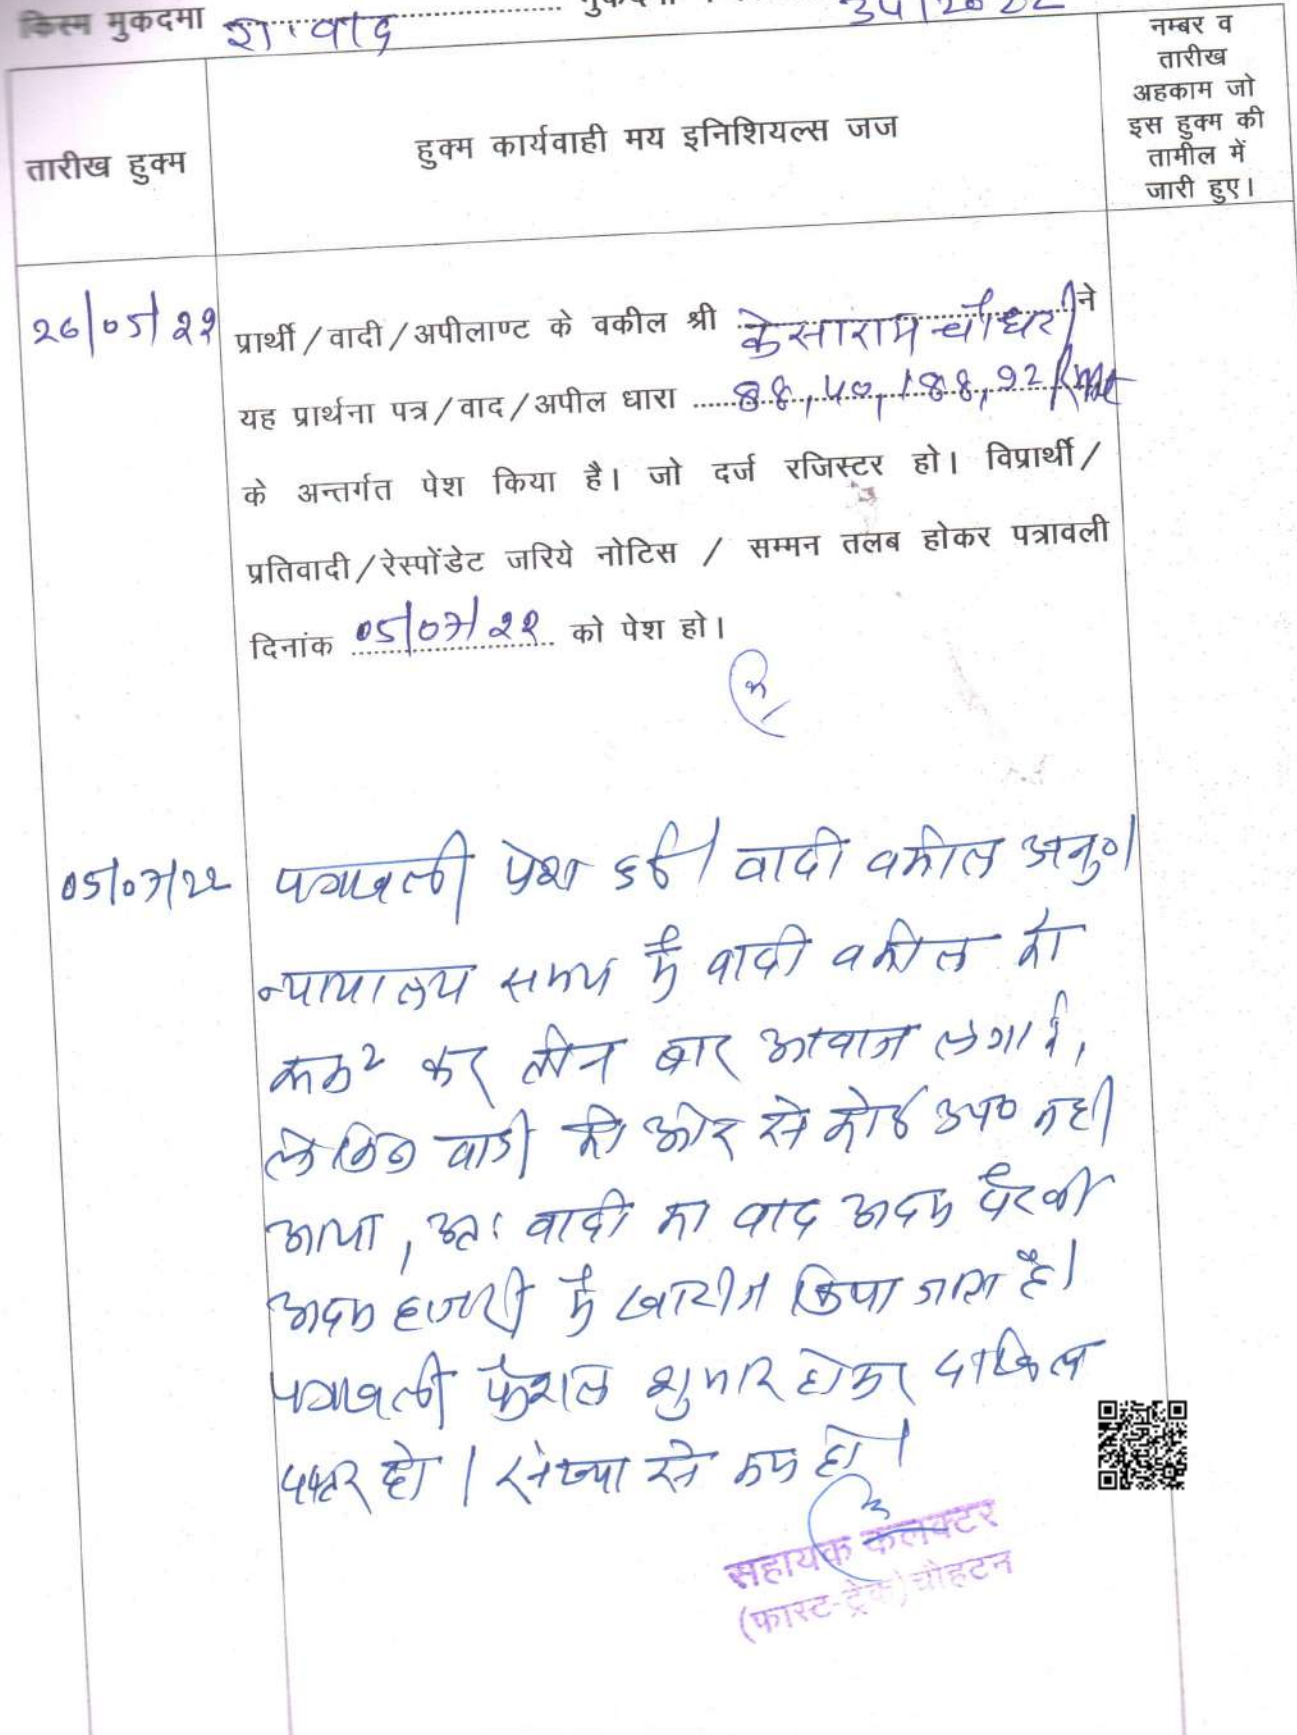 किस्म मुकदमा रा. वाद
नम्बर व
तारीख
अहकाम जो
इस हुक्म की
तामील में
जारी हुए।
तारीख हुक्म
हुक्म कार्यवाही मय इनिशियल्स जज
26/05/22
प्रार्थी/वादी/अपीलाण्ट के वकील श्री केसाराम चौधरी ने
यह प्रार्थना पत्र/वाद/अपील धारा 88, 40, 188, 92
के अन्तर्गत पेश किया है। जो दर्ज रजिस्टर हो। विप्रार्थी/
प्रतिवादी/रेस्पोंडेट जरिये नोटिस / सम्मन तलब होकर पत्रावली
दिनांक 05/07/22 को पेश हो।
05/07/22
पत्रावली पेश हुई। वादी वकील अनु०।
न्यायालय समय में वादी वकील को
रूक२ कर तीन बार आवाज लगाई,
लेकिन वादी की ओर से कोई उप० नही
आया, अतः वादी का वाद अदम पैरवी
अदम हाजरी में खारीज किया जाता है।
पत्रावली फैशल शुमार होकर दाखिल
दफ्तर हो। संख्या से कम हो।
सहायक कलक्टर
(फास्ट-ट्रेक) चौहटन